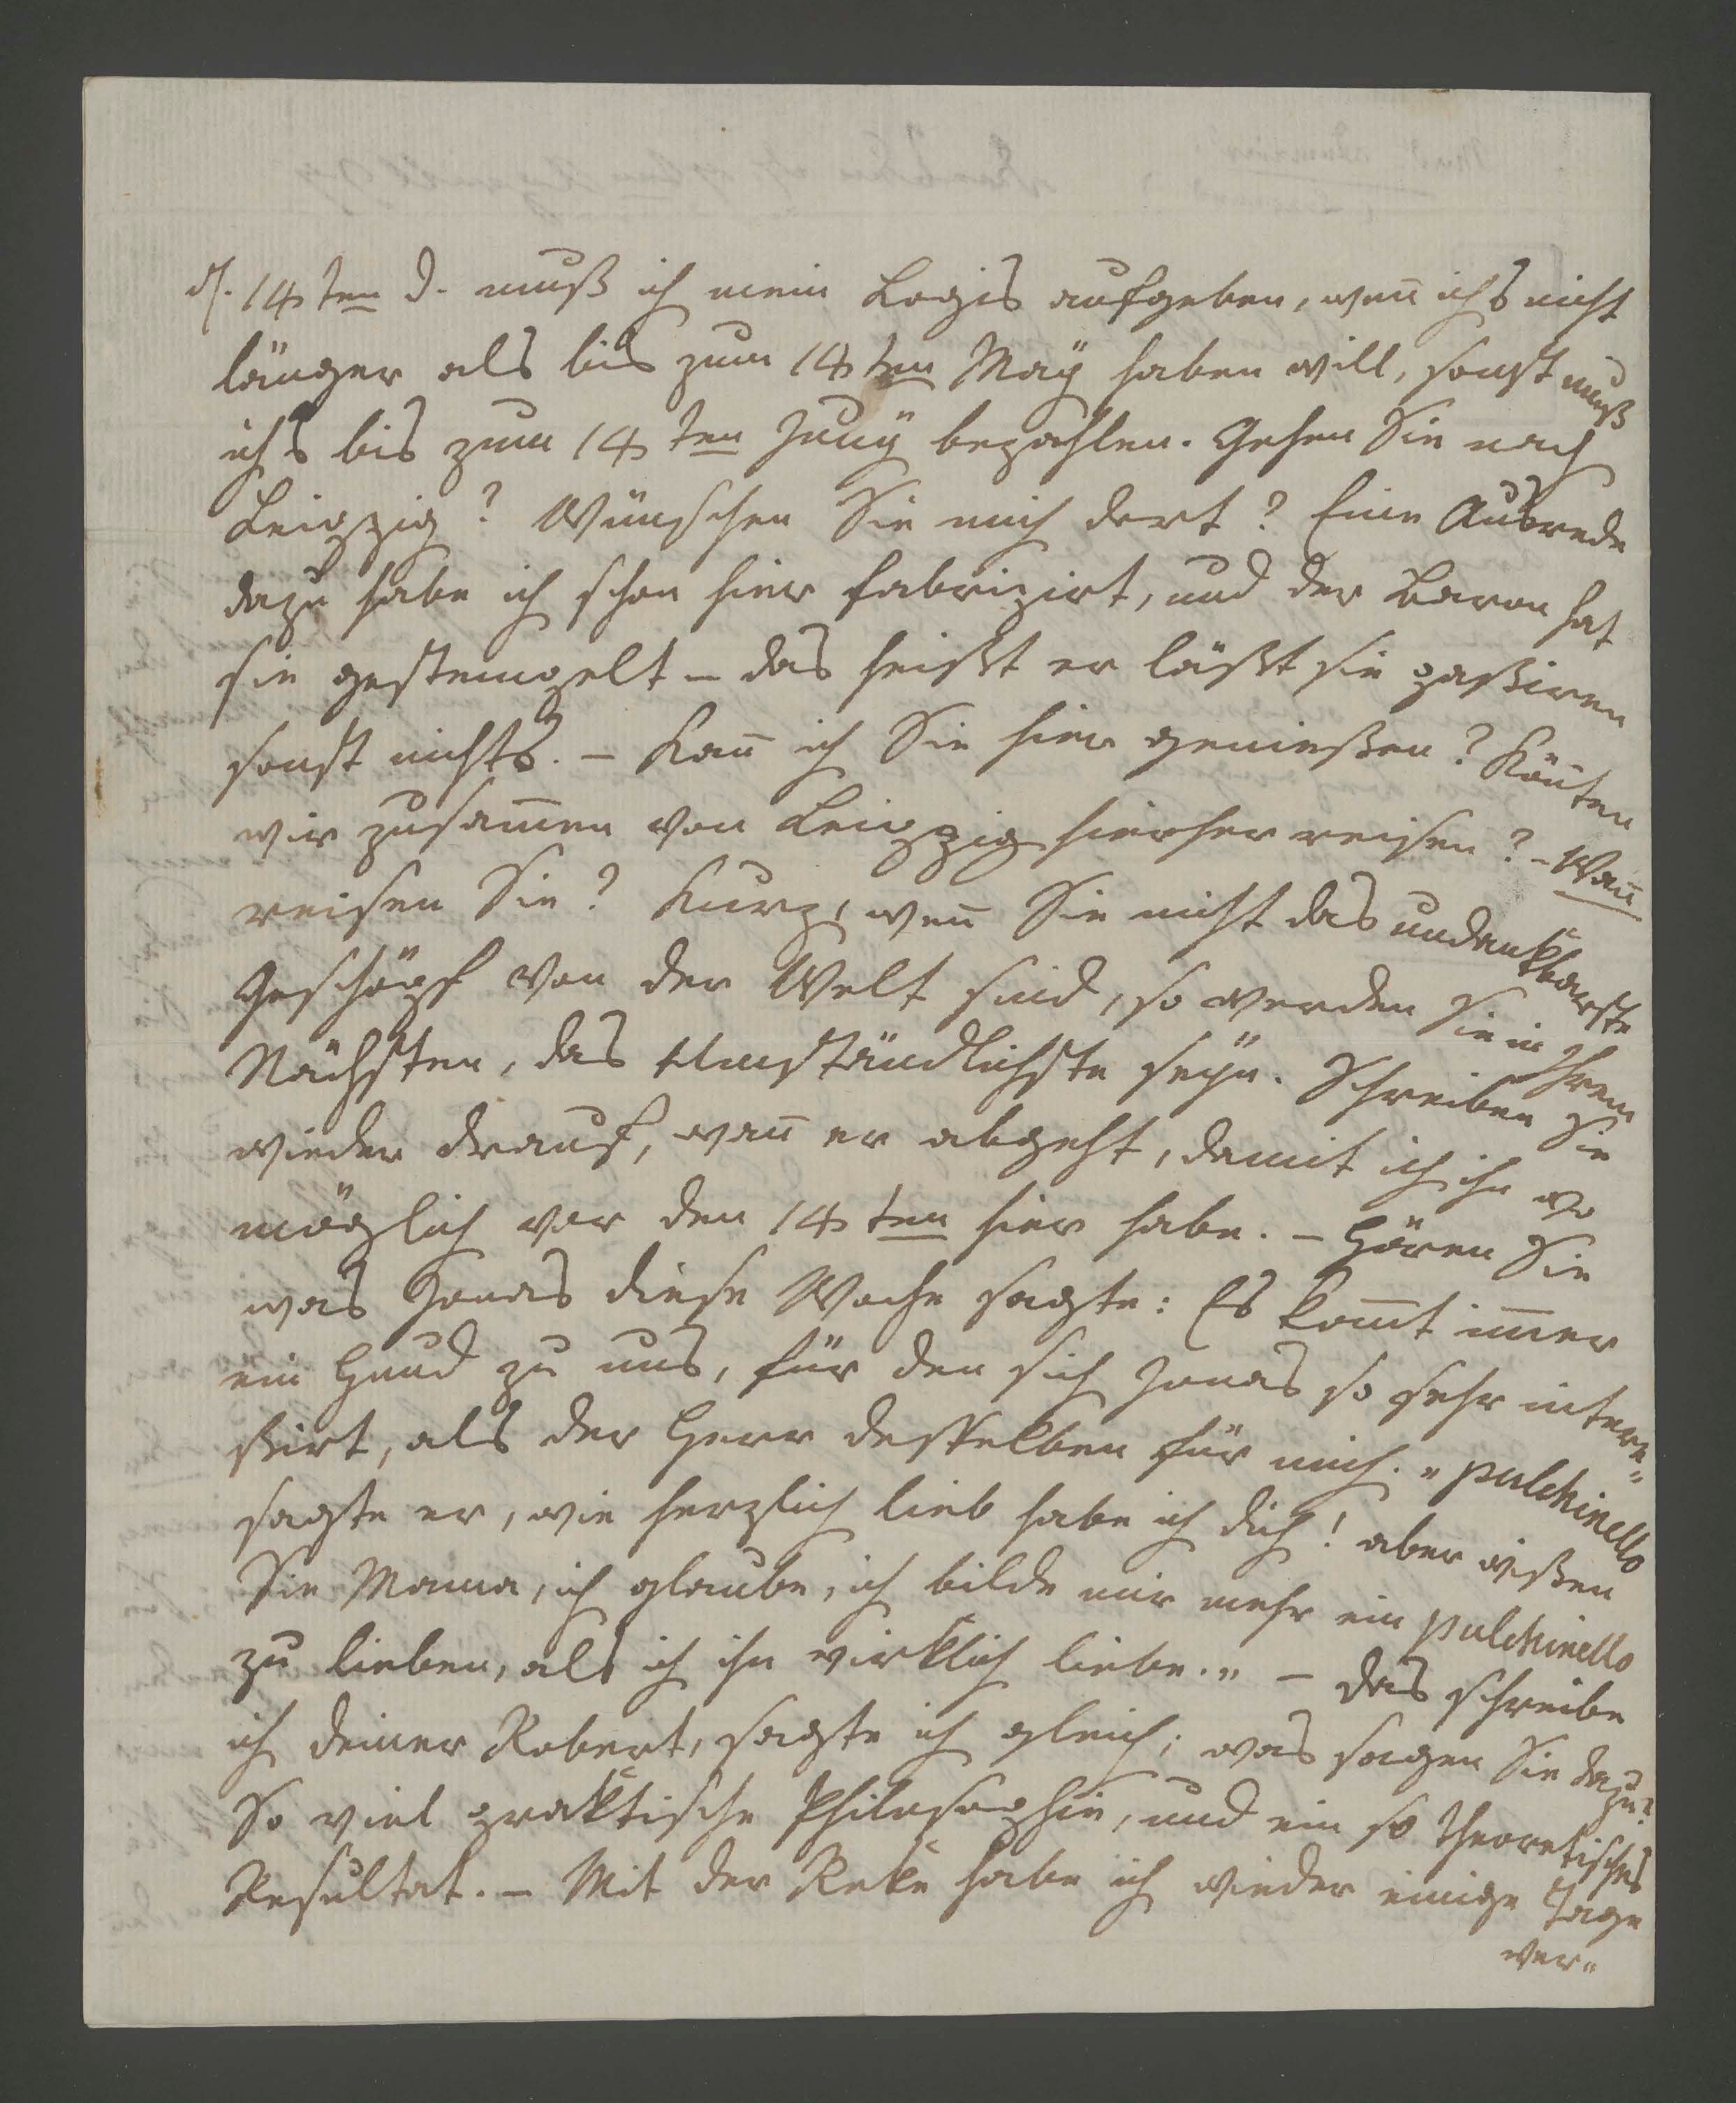 d. 14ten d. muß ich mein Logis aufgeben, weñ ichs nicht
länger als bis zum 14ten Maÿ haben will, sonst muß
ichs bis zum 14ten Junÿ bezahlen. Gehen Sie nach
Leipzig? Wünschen Sie mich dort? Eine Ausrede
dazu habe ich schon hier fabrizirt, und der Baron hat
sie gestempelt – das heißt er läßt sie paßiren
sonst nichts. – Kañ ich Sie hier genießen? Köñten
wir zusam̄en von Leipzig hierher reisen? – Wañ
reisen Sie? Kurz, weñ Sie nicht das undankbarste
Geschöpf von der Welt sind, so werden Sie in Ihrem
Nächsten, das Umständlichste seÿn. Schreiben Sie
wieder drauf, wañ er abgeht, damit ich ihn wo
möglich vor den 14ten hier habe. – Hören Sie
was Jonas diese Woche sagte: Es kom̄t im̄er
ein Hund zu uns, für den sich Jonas so sehr intere„
ßirt, als der Herr desselben für mich. „Pulchinello
sagte er, wie herzlich lieb habe ich dich! aber wißen
Sie Mama, ich glaube, ich bilde mir mehr ein Pulchinello
zu lieben, als ich ihn wirklich liebe.„ – das schreibe
ich deiner Robert, sagte ich gleich; was sagen Sie dazu?
So viel praktische Philosophie, und ein so theoretisches
Resultat. – Mit der Reke habe ich wieder einige Tage
ver„